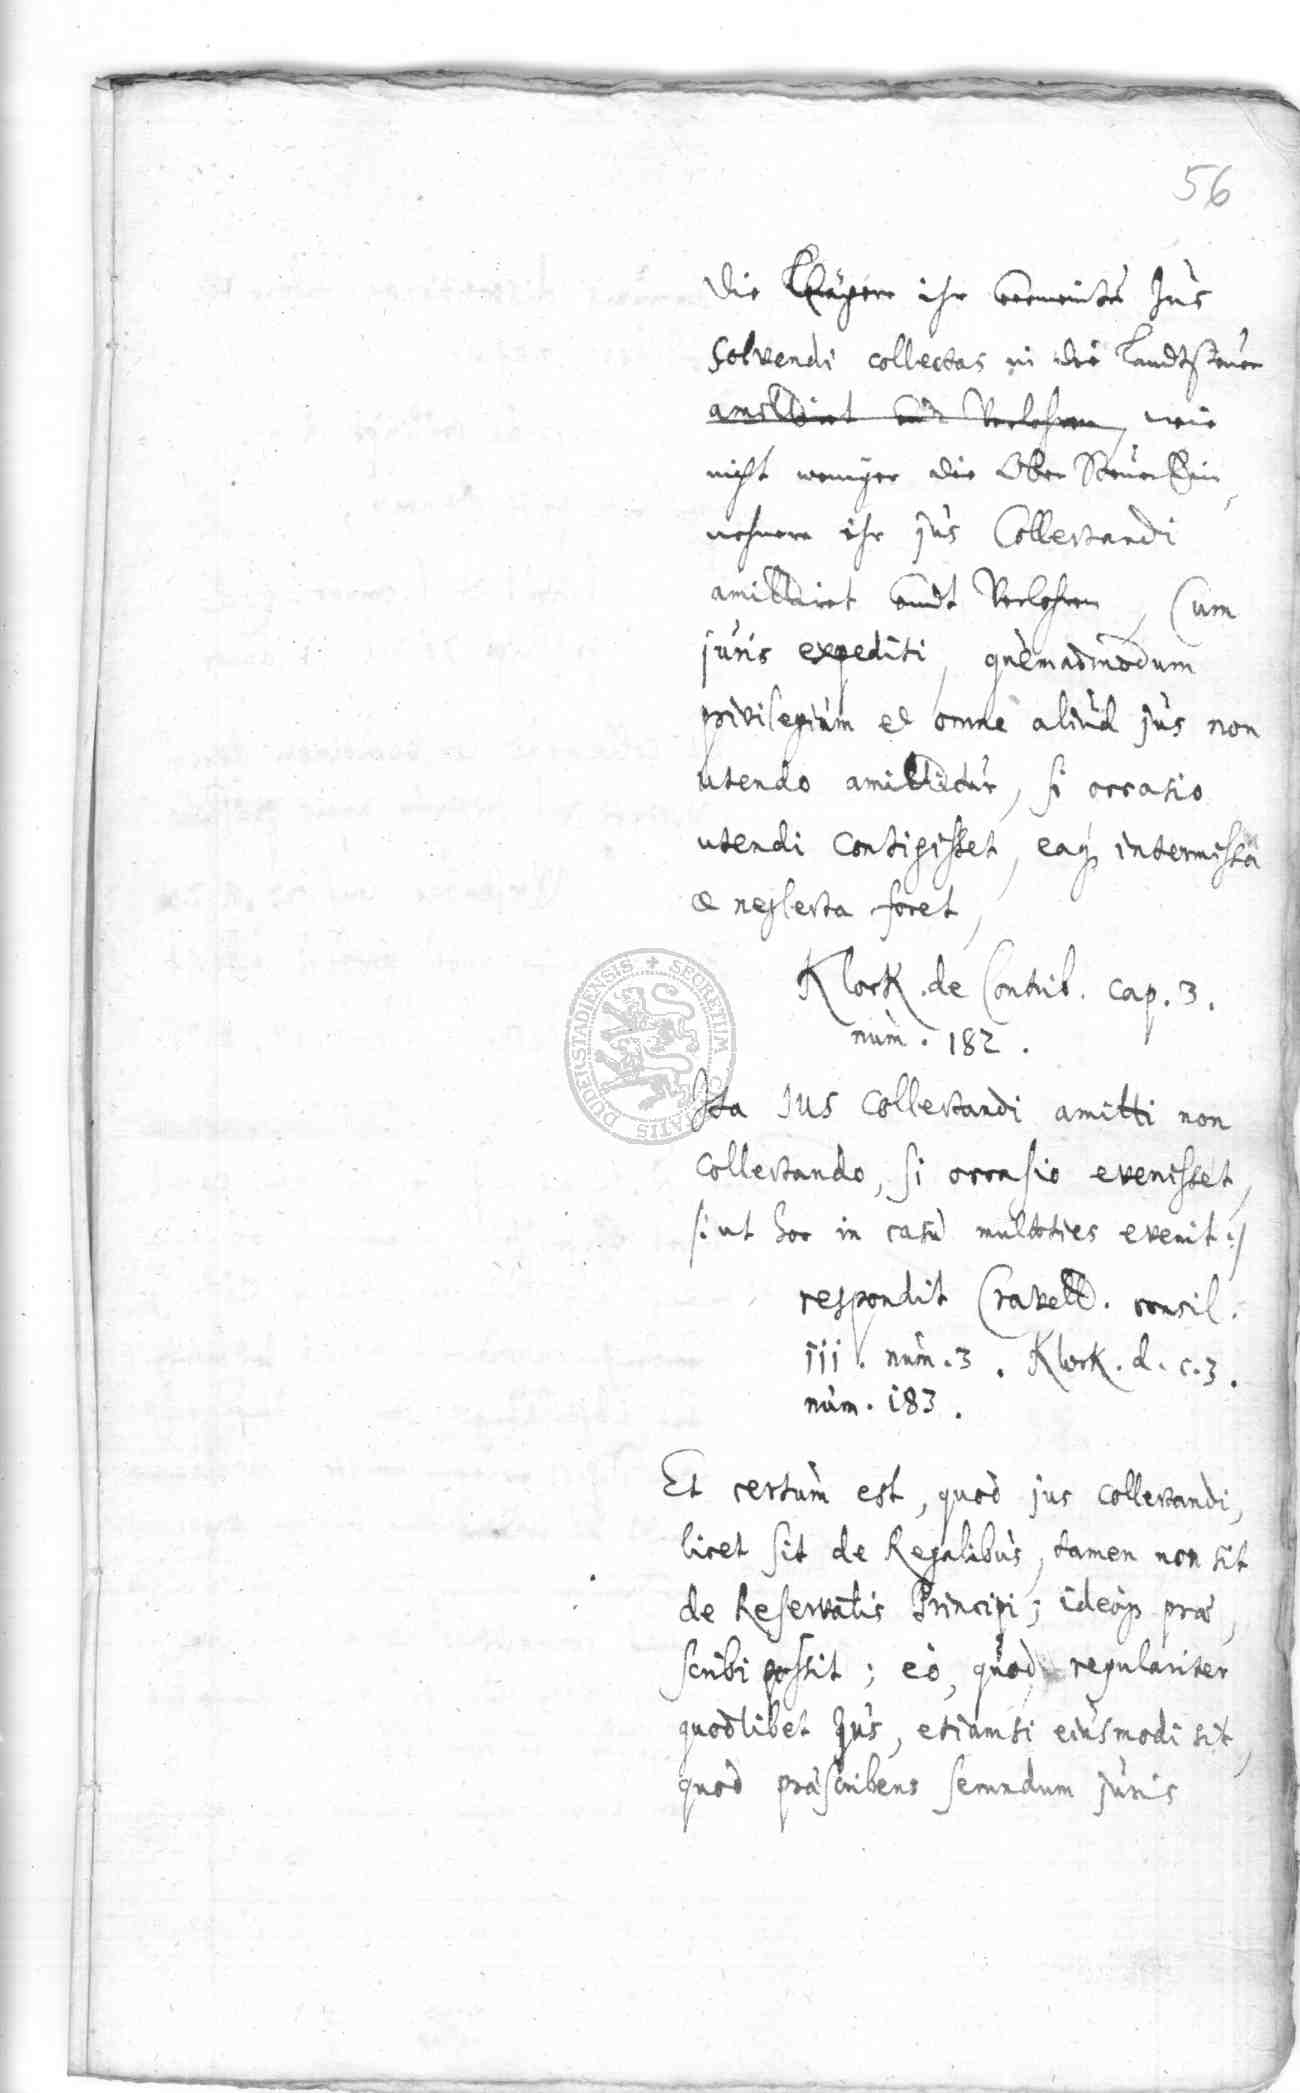 56
die Klägere ihr vermeintes Jus
solvendi collectas in die Landtsteuer
amittirt undt Verlohren, wie
nicht weniger die Ober Steuer Ein,
nehmere ihr jus Collectandi
amittiret undt Verlohren, Cum
juris expediti, quemadmodum
privilegium et omne aliud jus non
utendo amittitur, si occasio
utendi contigisset, eaq intermissa
et neglecta foret,
Klock. de Contrib. cap. 3.
num. 182.
Ita Jus Collectandi amitti non
Collectando, si occasio evenisset,
/: ut hoc in casu multoties evenit :/
respondit Cravett. consil.
iii. num. 3. Klock. d. c. 3.
num. 183.
Et certum est, quod jus collectandi,
licet sit de Regalibus, tamen non sit
de Reservatis Principi; ideoq prae,
scribi possit; eò, quod regulariter
quodlibet Jus, etiamsi eiusmodi sit,
quod praescribens secundum juris
SECRETUM CIVITATIS DUDERSTADIENSIS